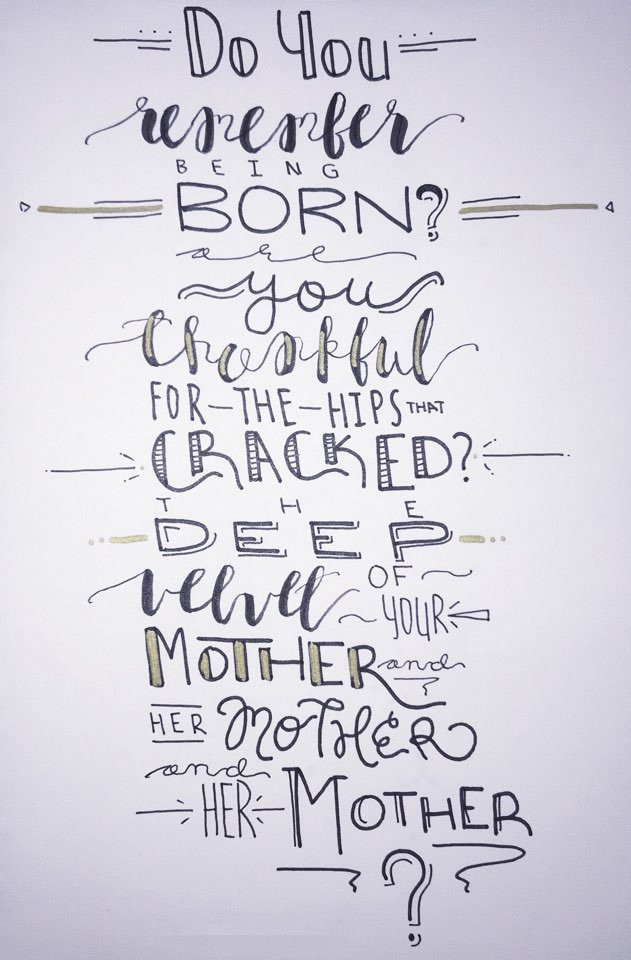 Do You
remember
BEING
BORN?
are
you
thankful
FOR-THE-HIPS THAT
CRACKED?
THE
DEEP
velvet OF
YOUR
MOTHER and
HER MOTHER
and
HER MOTHER
?